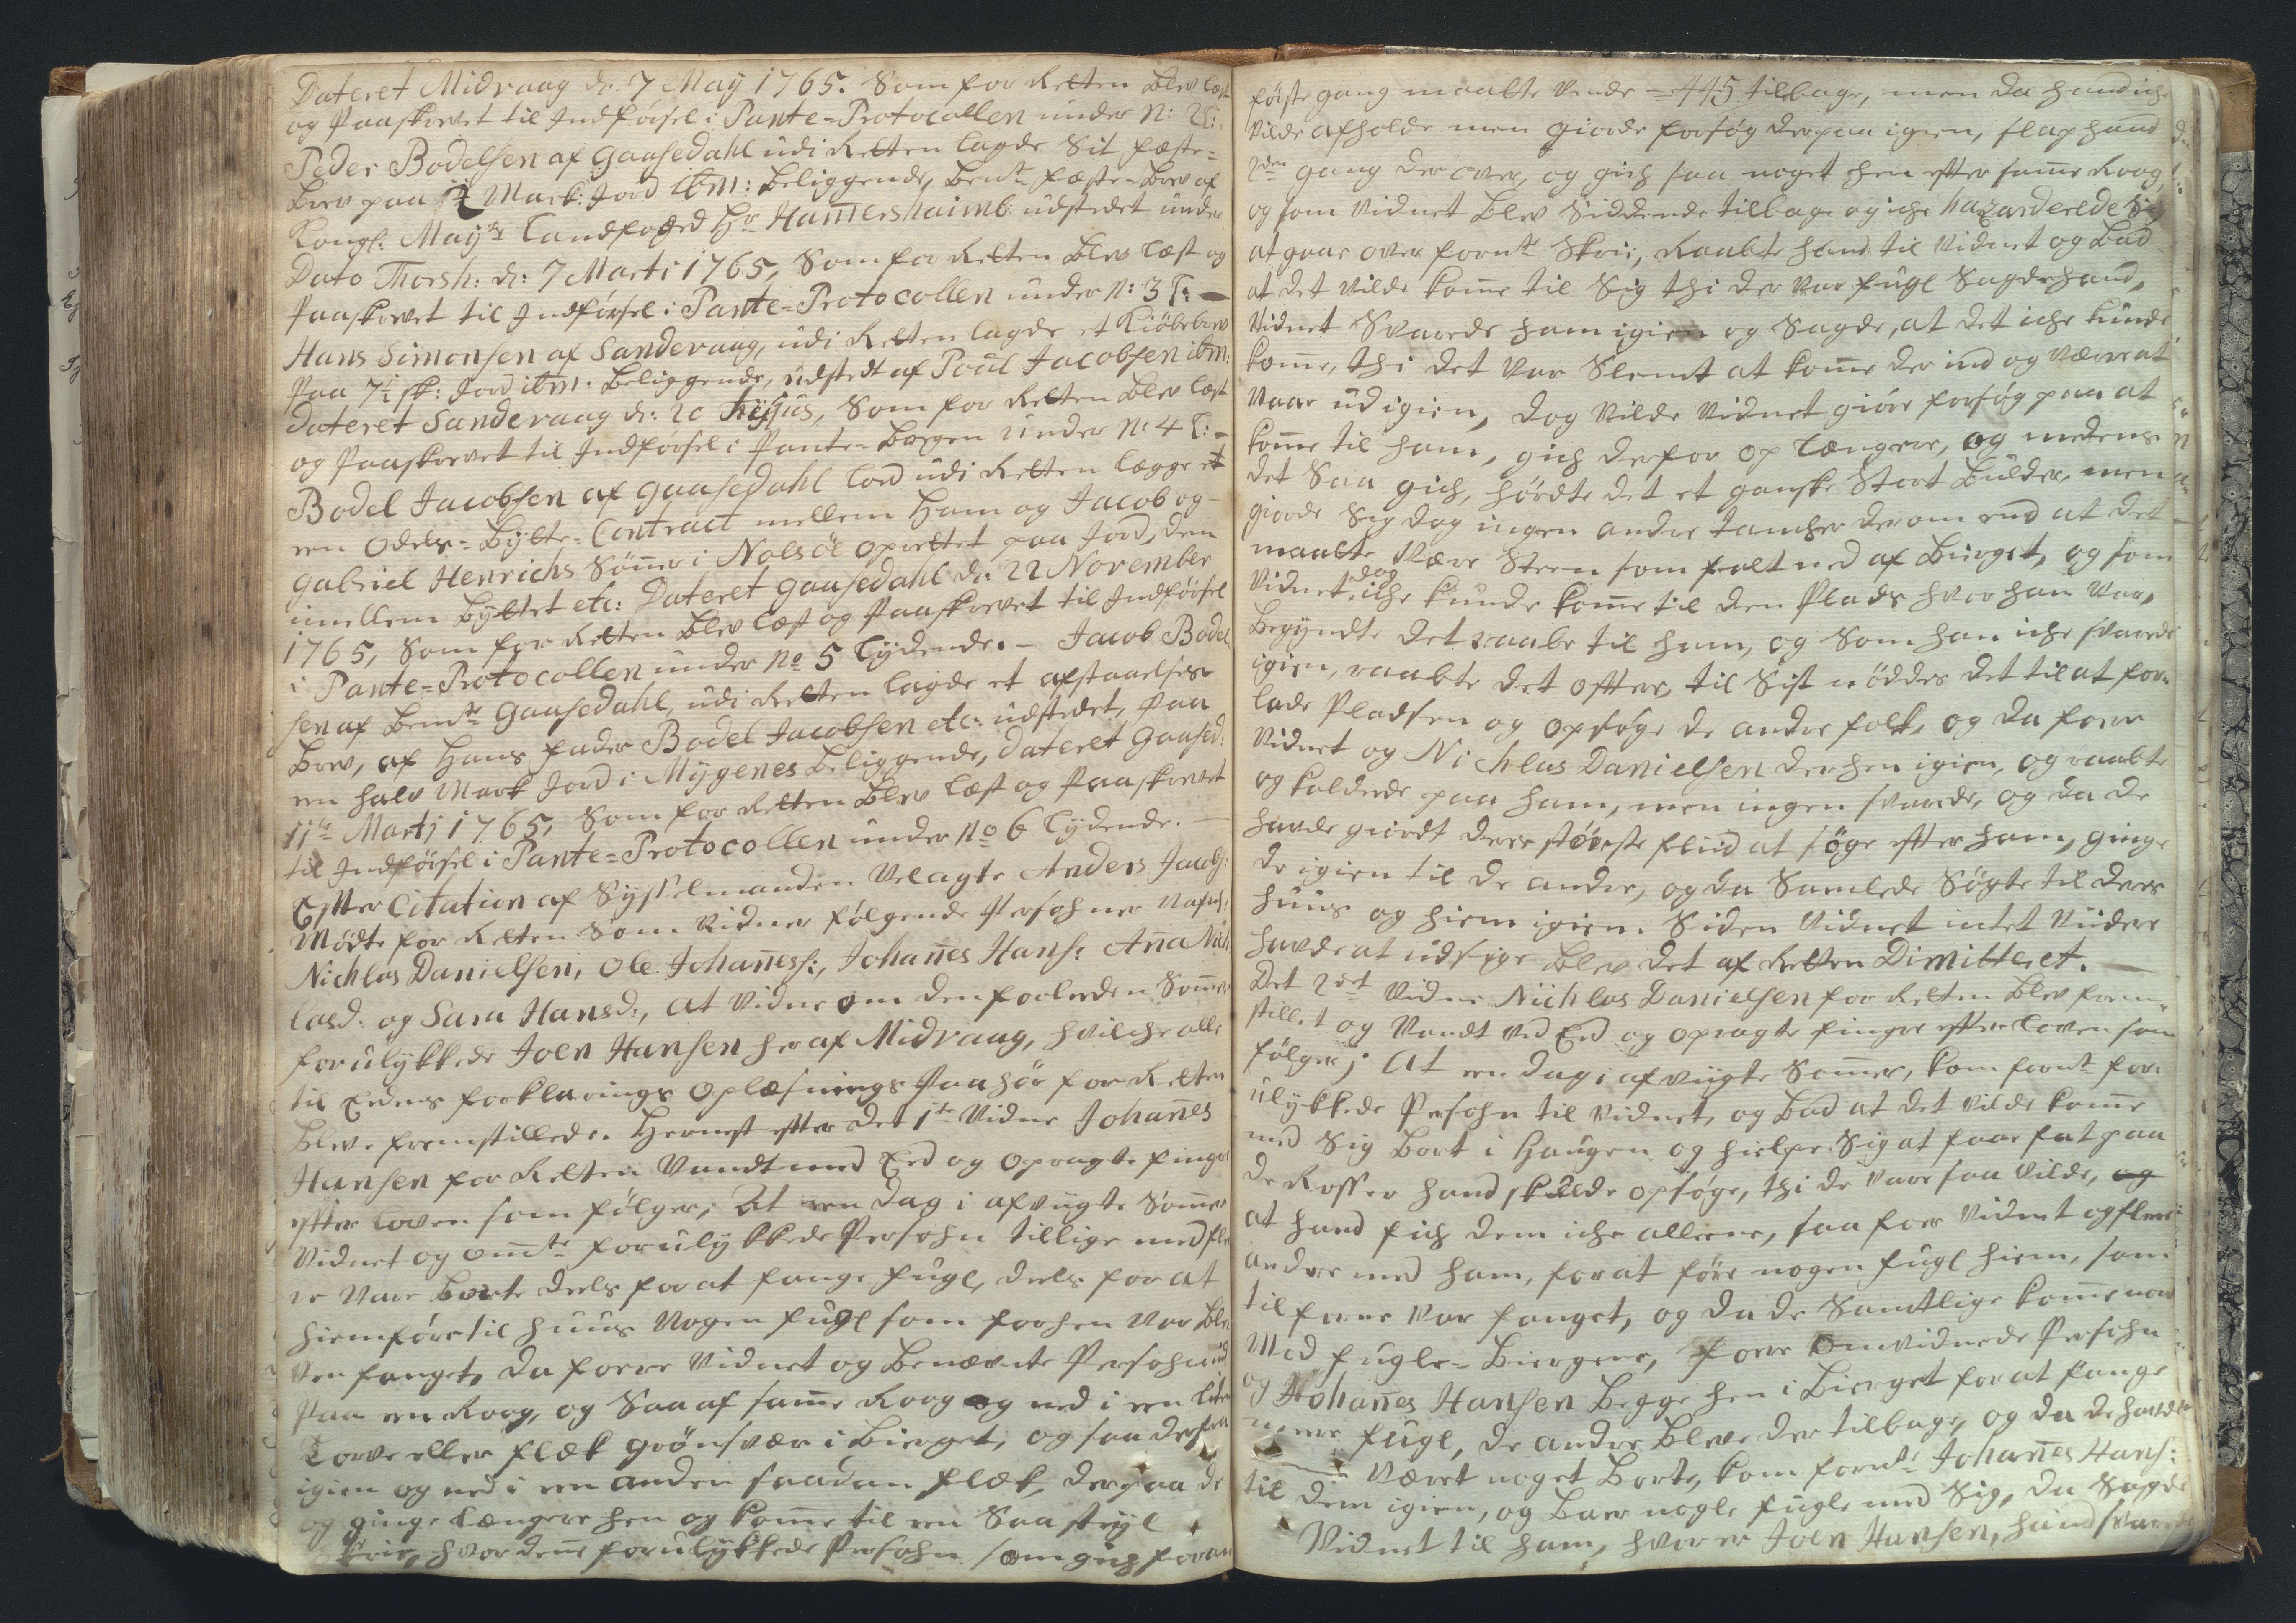 Dateret Midvaag d: 7 Maÿ 1765. Som for Retten blev læst
og Paaskrevet til Indförsel i Pante=Protocollen under N: 2 L:
Peder Bodelsen af Gaasedahl udi Retten lagde Sit fæste=
brev paa 1/2 Mark: Jord ibm: beliggende, bemte fæste=brev af
Kongl: Mayts Landfoged Hr Hamershaimb udstedet under
Dato Thorsh: d: 7 Marti 1765, Som for Retten blev læst og
Paaskrevet til Indförsel i Pante=Protocollen under N: 3 L: —
Hans Simonsen af Sandevaag, udi Retten lagde et Kiöbebrev
paa 7 1/2 sk: Jord ibm: beliggende, udstedt af Poul Jacobsen ibm:
Dateret Sandevaag d: 20 hujus, Som for Retten blev læst
og Paaskrevet til Indförsel i Pante=bogen under N: 4 L: —
Bodel Jacobsen af Gaasedahl lod udi Retten lægge et
en Odels=Bytte=Contract mellem Ham og Jacob og
Gabriel Henrichs Sönner i Nolsöe oprettet paa Jord, dem
imellem byttet etc: Dateret Gaasedahl d: 22 November
1765, Som for Retten blev læst og Paaskrevet til Indförsel
i Pante=Protocollen under No 5 Lydende. — Jacob Bodel
sen af bemte Gaasedahl, udi Retten lagde et afstaaelses
brev, af Hans fader Bodel Jacobsen etc: udstedet, paa
en halv Mark Jord i Mÿgenes beliggende, dateret Gaased:
11te Martj 1765, Som for Retten blev læst og Paaskrevet
til Indförsel i Pante=Protocollen under No 6 Lydende. —
Efter Citation af Sysselmanden Velagte Anders Jacobs:
Mödte for Retten Som Vidner fölgende Persohner
Nichlas Danielsen, Ole Johaness:, Johanes Hans: Ana Nich
lasd: og Sara Hansd:, at vidne om den forleeden Sommer
forulykkede Joen Hansen her af Midvaag, hvilche alle
til Eedens forklarings Oplæsnings Paahör for Retten
bleve fremstillede. Hernest efter det 1te Vidne Johanes
Hansen for Retten Vandt med Eed og Opragte finger
efter loven som fölger, At een dag i afvigte Sommer
Vidnet og omte forulykkede Persohn tillige med fle
re vare borte deels for at fange fugl, deels for at
hiemföre til Huus Nogen fugl som forhen var ble
ven fanget, da foere Vidnet og benævnte Persohn ud
paa en Roeg, og Saa af samme Roeg og ned i een liden
Torve eller flæk grönsvær i bierget, og saa der fra
igien og ned i een anden saadan flæk, derpaa de
og ginge længere hen og komme til een Saa steÿl
hvor denne forulykkede Persohn som gich foran
förste gang maatte vende = 445 tilbage, men da hand iche
vilde afholde men giorde forsög derpaa igien, slap hand
2den gang der over, og gich saa noget hen efter samme Roeg,
og som Vidnet blev Siddende tilbage og iche hazarderede Sig
at gaae over fornte Skrii, Raabte hand til Vidnet og bad
at det vilde komme til Sig thi der var fugl Sagde hand,
Vidnet Svarede ham igien og Sagde, at det iche kunde
komme, thi det var Slemt at komme der ind og værre at
vaae ud igien, dog vilde Vidnet giöre forsög paa at
komme til ham, gich derfor op Længere, og medens
det Saa gich, hördte det et ganske Stort bulder, men
giorde Sig dog ingen andre tancher derom end at det
maatte være Steen som falt ned af bierget, og som
Vidnet dog iche kunde komme til den Plads hvor ham var,
begyndte det raabe til ham, og Som han iche svarede
igien, raabte det oftere, til Sist nöddes det til at for=
lade Pladsen og opsöge de andre folk, og da foere
Vidnet og Nichlas Danielsen derhen igien, og raabte
og kaldede paa ham, men ingen svarede, og da de
havde giordt deres störeste fliid at söge efter ham, ginge
de igien til de andre, og da Samlede Sögte til deres
huus og hiem igien. Siden Vidnet intet Viidere
havde at udsige blev det af Retten Dimitteret. —
Det 2det Vidne Nichlas Danielsen for Retten blev frem=
stillet og vandt ved Eed og opragte finger efter loven som
fölger; At een dag i afvigte Sommer, kom fornte for=
ulykkede Persohn til Vidnet, og bad at det vilde komme
med Sig bort i Haugen og hielpe Sig at faae fat paa
de Rosser hand skulde opsöge, thi de vare saa vilde, og
at hand fich dem iche alleene, saa foer Vidnet og fleere
andre med ham, for at före nogen fugl hiem, som
tilforne var fanget, og da de Samtlige komme ned
Mod fugle=biergene, foere omvidnede Persohn
og Johanes Hansen begge hen i bierget for at fange
meere fugl, de andre bleve der tilbage, og da de havde
været noget borte, kom fornte Johanes Hans:
til dem igien, og baer nogle fugle med Sig, da Sagde
Vidnet til ham, hvor er Joen Hansen, hand svarede